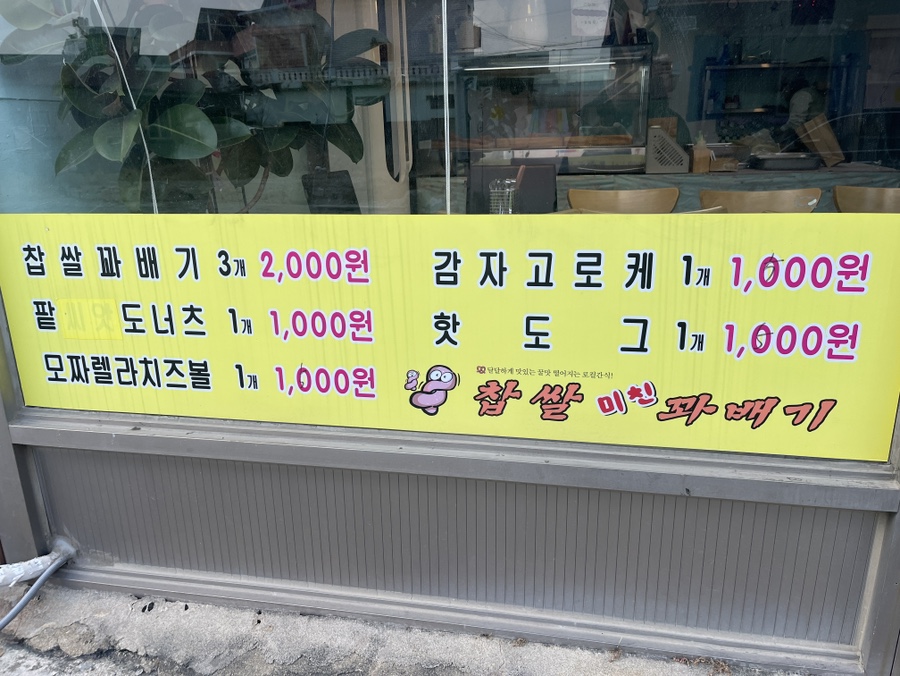 찹쌀꽈배기 3개 2,000원
팥 씨앗 도너츠 1개 1,000원
모짜렐라치즈볼 1개 1,000원
감자고로케 1개 1,000원
핫도그 1개 1,000원
달달하게 맛있는 꿀맛 떨어지는 로컬간식!
찹쌀 미친 꽈배기